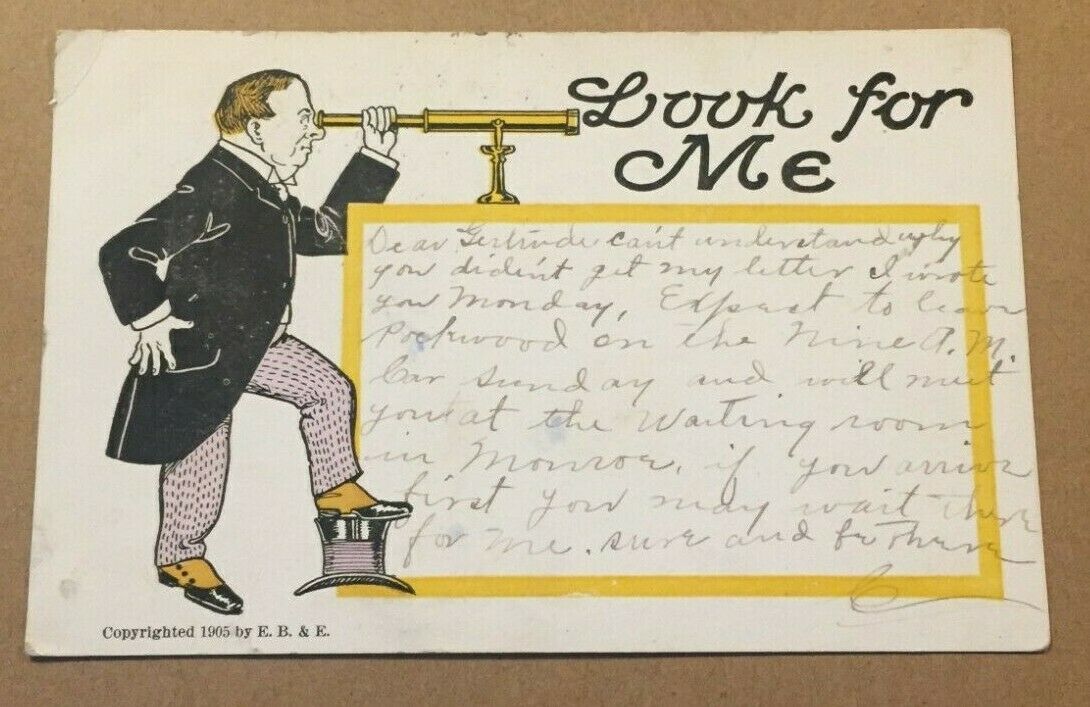 Look for
Me
Dear Gertrude can't understand why
you did'ent get my letter I wrote
you Monday, Expect to leave
Rockwood on the Nine A.M.
Car sunday and will meet
you at the Waiting room
in Monroe, if you arrive
first you may wait there
for me. sure and be there
C
Copyrighted 1905 by E. B. & E.